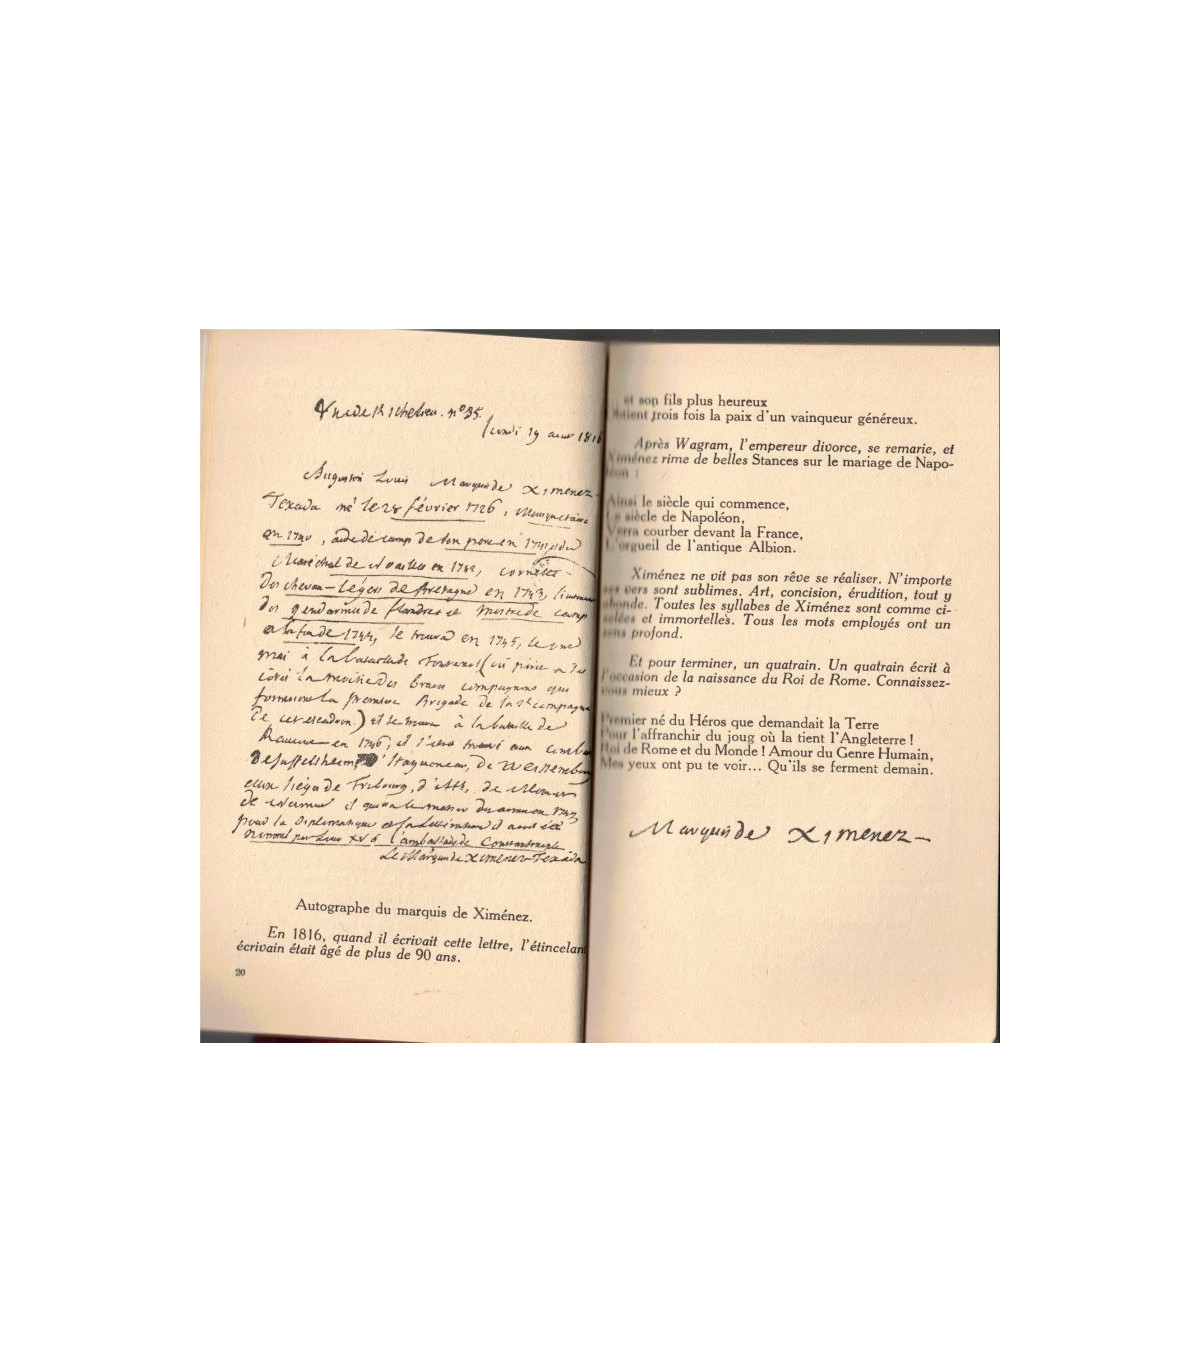 Rue de Richelieu. n° 35.
lundi 19 aout 1816
Augustin Louis Marquis de Ximenez-
Texada né le 28 février 1726, Mousquetaire
en 1740, aide de camp de son pere en 1741, et du
Maréchal de Noailles en 1742, cornette
des chevau-Légers de Bretagne en 1743,
des gendarmes de flandres et mestre de camp
a la fin de 1744, se trouva en 1745, le onze
mai à la bataille de Fontenoi (où périt a ses
côtés la moitié des braves compagnons qui
formoient la premiere Brigade de la compagnie
de cet escadron) et se trouva à la bataille de
Raucoux en 1746, et s'etoit trouvé aux combats
de Suffelsheim, d'Haguenau, de Weissembourg
aux sièges de Fribourg, d'Ath, de
de il quitta le
pour la Diplomatique et la Littérature il avoit été
nommé par Louis XV à l'ambassade de Constantinople
Le Marquis de Ximenez-Texada
Autographe du marquis de Ximénez.
En 1816, quand il écrivait cette lettre, l'étincelant
écrivain était âgé de plus de 90 ans.
20
et son fils plus heureux
trois fois la paix d'un vainqueur généreux.
Après Wagram, l'empereur divorce, se remarie, et
Ximénez rime de belles Stances sur le mariage de Napo-
léon :
Ainsi le siècle qui commence,
Le siècle de Napoléon,
Verra courber devant la France,
L'orgueil de l'antique Albion.
Ximénez ne vit pas son rêve se réaliser. N'importe
ses vers sont sublimes. Art, concision, érudition, tout y
abonde. Toutes les syllabes de Ximénez sont comme ci-
selées et immortelles. Tous les mots employés ont un
sens profond.
Et pour terminer, un quatrain. Un quatrain écrit à
l'occasion de la naissance du Roi de Rome. Connaissez-
vous mieux ?
Premier né du Héros que demandait la Terre
Pour l'affranchir du joug où la tient l'Angleterre !
Roi de Rome et du Monde ! Amour du Genre Humain,
Mes yeux ont pu te voir... Qu'ils se ferment demain.
Marquis de Ximenez